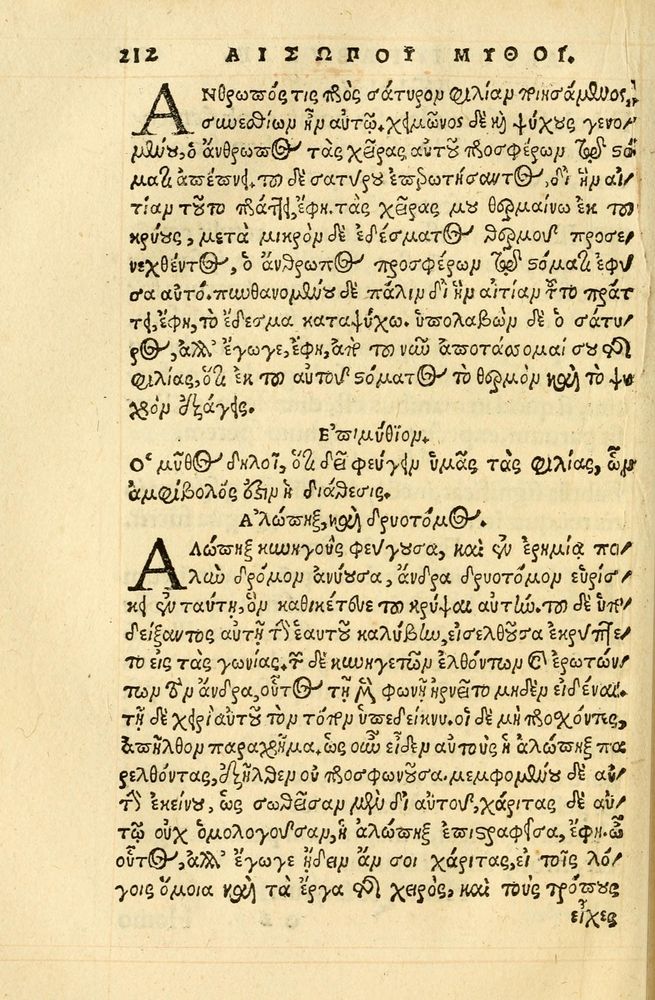 212 ΑΙΣΩΠΟΥ ΜΥΘΟΙ.
ΑΝθρωπός τις πρὸς σάτυρον φιλίαν ποιησάμενος,
συνεσθίων ἦν αὐτῷ. χειμῶνος δὲ καὶ ψύχους γενο/
μένου, ὁ ἄνθρωπος τὰς χεῖρας αὐτοῦ προσφέρων τῷ στό
ματι ἀπέπνει. τοῦ δὲ σατύρου ἐπερωτήσαντος, δι' ἣν αἰ/
τίαν τοῦτο πράττει, ἔφη. τὰς χεῖράς μου θερμαίνω ἐκ τοῦ
κρύους, μετὰ μικρὸν δὲ ἐδέσματος θερμοῦ προσε/
νεχθέντος, ὁ ἄνθρωπος προσφέρων τῷ στόματι ἐφύ
σα αὐτό. πυνθανομένου δὲ πάλιν δι' ἣν αἰτίαν τοῦτο πράτ
τει, ἔφη, τὸ ἔδεσμα καταψύχω. ὑπολαβὼν δὲ ὁ σάτυ/
ρος, ἀλλ' ἔγωγε, ἔφη, ἀπὸ τοῦ νῦν ἀποτάσσομαί σου τῆς
φιλίας, ὅτι ἐκ τοῦ αὐτοῦ στόματος τὸ θερμὸν καὶ τὸ ψυ
χρὸν ἐξάγεις.
Ἐπιμύθιον.
Ὁ μῦθος δηλοῖ, ὅτι δεῖ φεύγειν ὑμᾶς τὰς φιλίας, ὧν
ἀμφίβολός ἐστιν ἡ διάθεσις.
Ἀλώπηξ, καὶ δρυοτόμος.
ΑΛώπηξ κυνηγοὺς φεύγουσα, καὶ ἐν ἐρημίᾳ πο/
λὺν δρόμον ἀνύουσα, ἄνδρα δρυοτόμον εὑρίσ/
κει ἐν ταύτῃ, ὃν καθικέτευε τοῦ κρύψαι αὐτήν. τοῦ δὲ ὑπο/
δείξαντος αὐτῇ τὴν ἑαυτοῦ καλύβην, εἰσελθοῦσα ἐκρύπτε/
το εἰς τὰς γωνίας. τῶν δὲ κυνηγετῶν ἐλθόντων καὶ ἐρωτών/
των τὸν ἄνδρα, οὗτος τῇ μὲν φωνῇ ἠρνεῖτο μηδὲν εἰδέναι.
τῇ δὲ χειρὶ αὐτοῦ τὸν τόπον ὑπεδείκνυ. οἱ δὲ μὴ προσχόντες,
ἀπῆλθον παραχρῆμα. ὡς οὖν εἶδεν αὐτοὺς ἡ ἀλώπηξ πα
ρελθόντας, ἐξῆλθεν οὐ προσφωνοῦσα. μεμφομένου δὲ αὐ/
τὴν ἐκείνου, ὡς σωθεῖσαν μὲν δι' αὐτοῦ, χάριτας δὲ αὐ/
τῷ οὐχ ὁμολογοῦσαν, ἡ ἀλώπηξ ἐπιστραφεῖσα, ἔφη. ὦ
οὗτος, ἀλλ' ἔγωγε ᾔδειν ἄν σοι χάριτας, εἰ τοῖς λό/
γοις ὅμοια καὶ τὰ ἔργα τῆς χειρός, καὶ τοὺς τρόπους
εἶχες